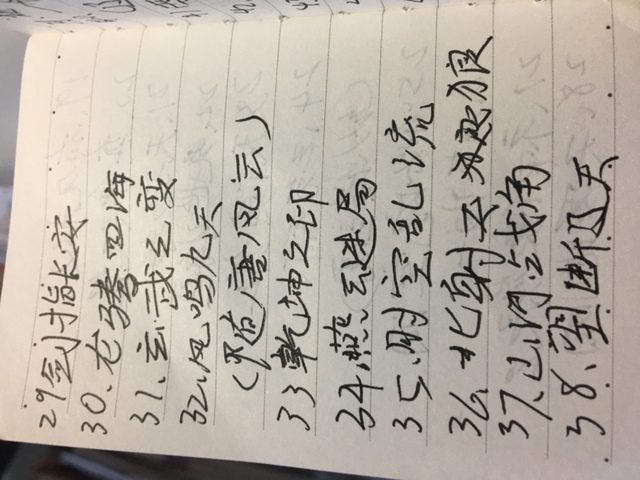 29剑指长安
30、龙腾四海
31、玄武之变
32、凤鸣九天
(界道唐风云)
33乾坤之印
34、燕云迷局
35、时空乱流
36、北射天狼
37、山河战角
38、望断天